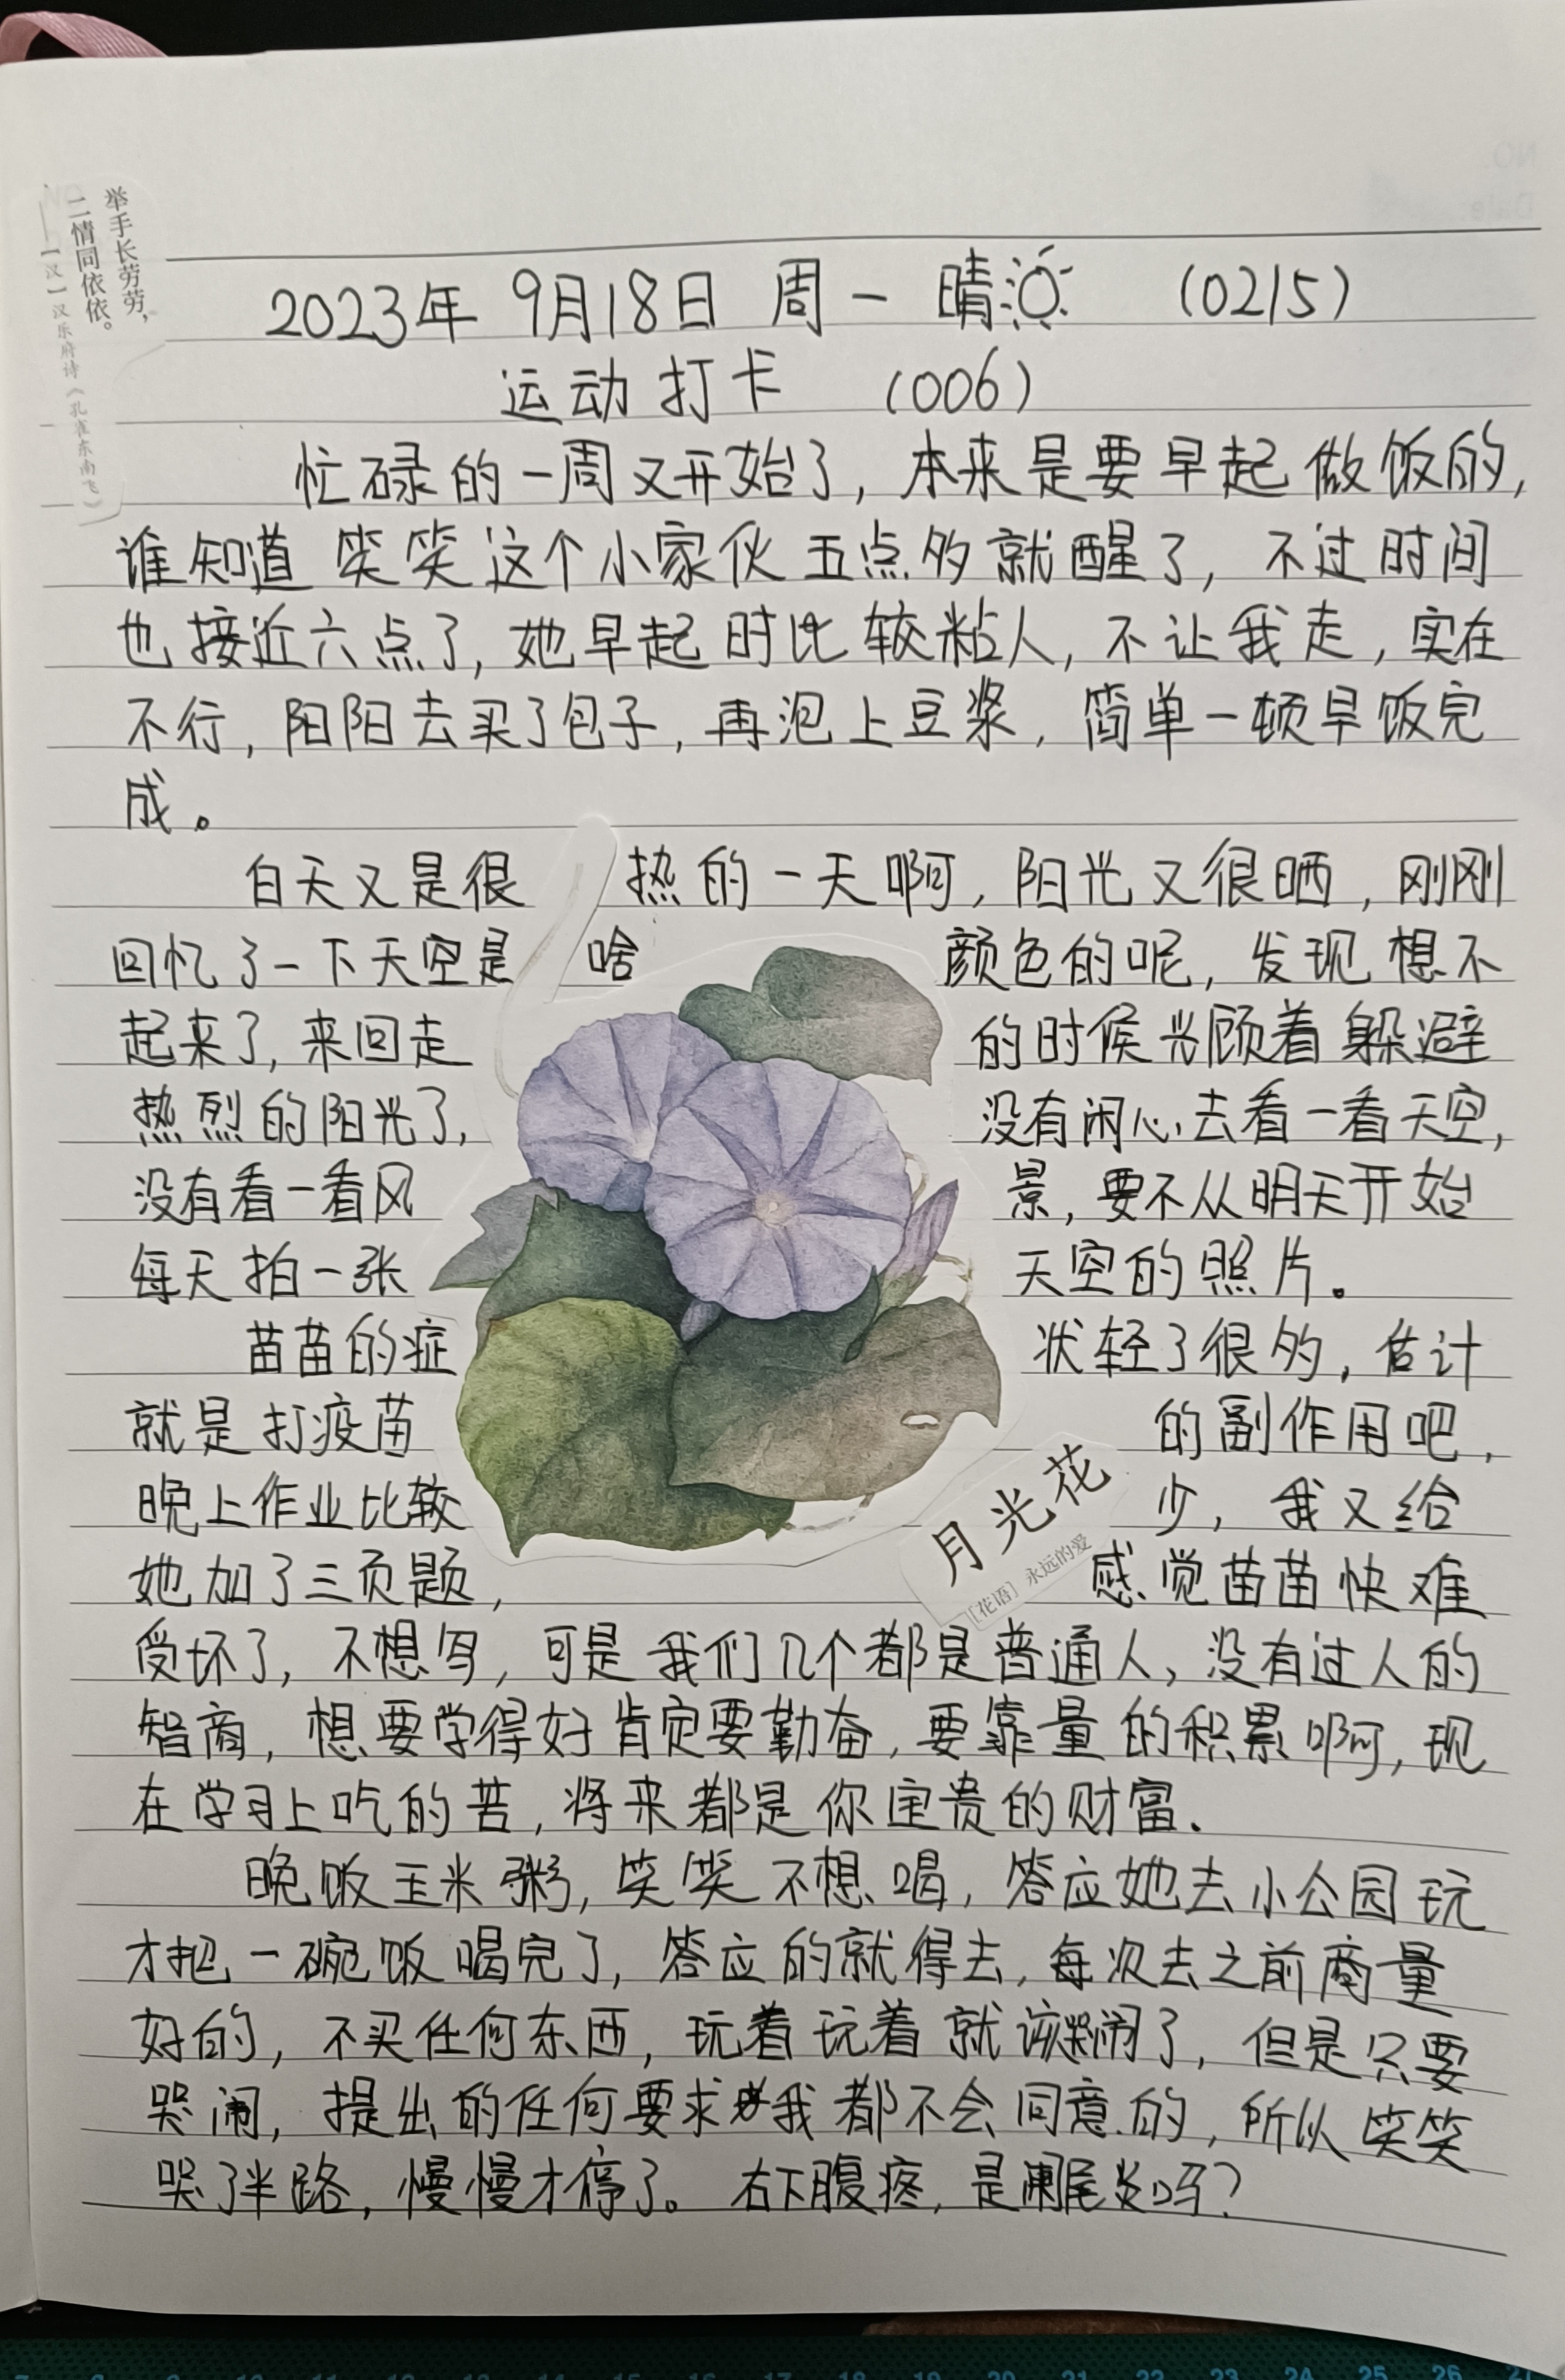 举手长劳劳，
二情同依依。
——[汉]汉乐府诗《孔雀东南飞》
2023年 9月18日 周一 晴 (0215)
运动打卡 (006)
忙碌的一周又开始了，本来是要早起做饭的，
谁知道笑笑这个小家伙五点多就醒了，不过时间
也接近六点了，她早起时比较粘人，不让我走，实在
不行，阳阳去买了包子，再泡上豆浆，简单一顿早饭完
成。
白天又是很热的一天啊，阳光又很晒，刚刚
回忆了一下天空是啥颜色的呢，发现想不
起来了，来回走的时候光顾着躲避
热烈的阳光了，没有闲心去看一看天空，
没有看一看风景，要不从明天开始
每天拍一张天空的照片。
苗苗的症状轻了很多，估计
就是打疫苗的副作用吧，
晚上作业比较少，我又给
她加了三页题，感觉苗苗快难
受坏了，不想写，可是我们几个都是普通人，没有过人的
智商，想要学得好肯定要勤奋，要靠量的积累啊，现
在学习上吃的苦，将来都是你宝贵的财富.
晚饭玉米粥，笑笑不想喝，答应她去小公园玩
才把一碗饭喝完了，答应的就得去，每次去之前商量
好的，不买任何东西，玩着玩着就该哭闹了，但是只要
哭闹，提出的任何要求我都不会同意的，所以笑笑
哭了半路，慢慢才停了。右下腹疼，是阑尾炎吗？
月光花
[花语] 永远的爱
NO.
Date:
8 9 10 11 12 13 14 15 16 17 18 19 20 21 22 23 24 25 26